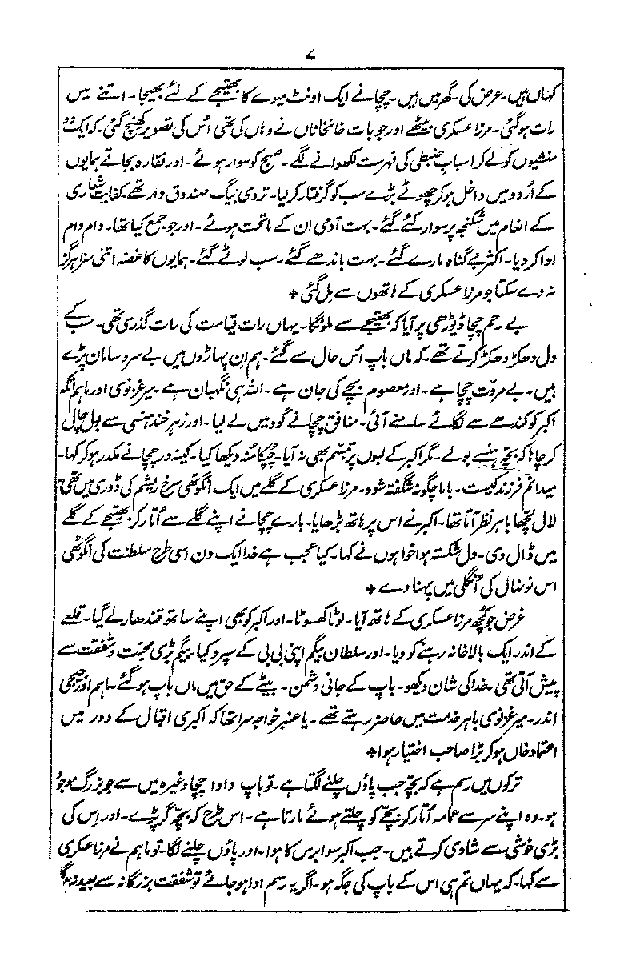 ۷
کہاں ہیں۔ عرض کی۔ گھر میں ہیں۔ چچا نے ایک اونٹ میوے کا بھتیجے کے لئے بھیجا۔ اتنے میں
رات ہو گئی۔ مرزا عسکری بیٹھے اور جو بات خانخاناں نے وہاں کہی تھی اُس کی تصویر کھنچ گئی۔ کہ ایک دو
منشیوں کو لے کر اسباب ضبطی کی فہرست لکھوانے لگے۔ صبح کو سوار ہوئے۔ اور نقارہ بجاتے ہمایوں
کے اُردو میں داخل ہو کر چھوٹے بڑے سب کو گرفتار کر لیا۔ تردی بیگ صندوق دار تھے کفایت شعاری
کے انعام میں شکنجہ پر سوار کئے گئے۔ بہت آدمی ان کے ماتحت ہوئے۔ اور جو جمع کیا تھا۔ دام دام
ادا کر دیا۔ اکثر بے گناہ مارے گئے۔ بہت باندھے گئے۔ سب لوٹے گئے۔ ہمایوں کا غصہ اتنی سزا ہرگز
نہ دے سکتا جو مرزا عسکری کے ہاتھوں سے مل گئی ۔
بے رحم چچا ڈیوڑھی پر آیا کہ بھتیجے سے ملونگا۔ یہاں رات قیامت کی رات گذری تھی۔ سب کے
دل دھکڑ دھکڑ کرتے تھے۔ کہ ماں باپ اُس حال سے گئے۔ ہم ان پہاڑوں میں بے سر و سامان پڑے
ہیں۔ بے مروّت چچا ہے۔ اور معصوم بچے کی جان ہے۔ اللہ ہی نگہبان ہے۔ میر غزنوی اور ماہم انکہ
اکبر کو کندھے سے لگائے سامنے آئی۔ منافق چچا نے گود میں لے لیا۔ اور زہر خند ہنسی سے بول چال
کر چاہا کہ بچہ ہنسے بولے۔ مگر اکبر کے لبوں پر تبسم بھی نہ آیا۔ چپکا مُنہ دیکھا کیا۔ کینہ ور چچا نے مکدر ہو کر کہا۔
میدانم فرزند کیست۔ باما چگونہ شگفتہ شود۔ مرزا عسکری کے گلے میں ایک انگوٹھی سرخ ریشم کی ڈوری میں تھی
لال لچھا باہر نظر آتا تھا۔ اکبر نے اس پر ہاتھ بڑھایا۔ بارے چچا نے اپنے گلے سے اُتار کر بھتیجے کے گلے
میں ڈال دی۔ دل شکستہ ہوا خواہوں نے کہا۔ کیا عجب ہے خدا ایک دن اسی طرح سلطنت کی انگوٹھی
اس نونہال کی اُنگلی میں پہنا دے ۔
غرض جو کچھ مرزا عسکری کے ہاتھ آیا۔ لوٹا کھسوٹا۔ اور اکبر کو بھی اپنے ساتھ قندھار لے گیا۔ قلعے
کے اندر ایک بالاخانہ رہنے کو دیا۔ اور سلطان بیگم اپنی بی بی کے سپرد کیا۔ بیگم بڑی محبت و شفقت سے
پیش آتی تھی۔ خدا کی شان دیکھو۔ باپ کے جانی دشمن۔ بیٹے کے حق میں ماں باپ ہو گئے۔ ماہم اور جیجی
اندر۔ میر غزنوی باہر خدمت میں حاضر رہتے تھے۔ یا عنبر خواجہ سرا تھا کہ اکبری اقبال کے دور میں
اعتماد خاں ہو کر بڑا صاحب اختیار ہوا ۔
ترکوں میں رسم ہے کہ بچہ جب پاؤں چلنے لگتا ہے۔ تو باپ دادا چچا وغیرہ میں سے جو بزرگ موجود
ہو۔ وہ اپنے سر سے عمامہ اُتار کر بچے کو چلتے ہوئے مارتا ہے۔ اس طرح کہ بچہ گر پڑے۔ اور اس کی
بڑی خوشی سے شادی کرتے ہیں۔ جب اکبر سوا برس کا ہوا۔ اور پاؤں چلنے لگا۔ تو ماہم نے مرزا عسکری
سے کہا۔ کہ یہاں تم ہی اس کے باپ کی جگہ ہو۔ اگر یہ رسم ادا ہو جائے تو شفقت بزرگانہ سے بعید نہ ہوگا